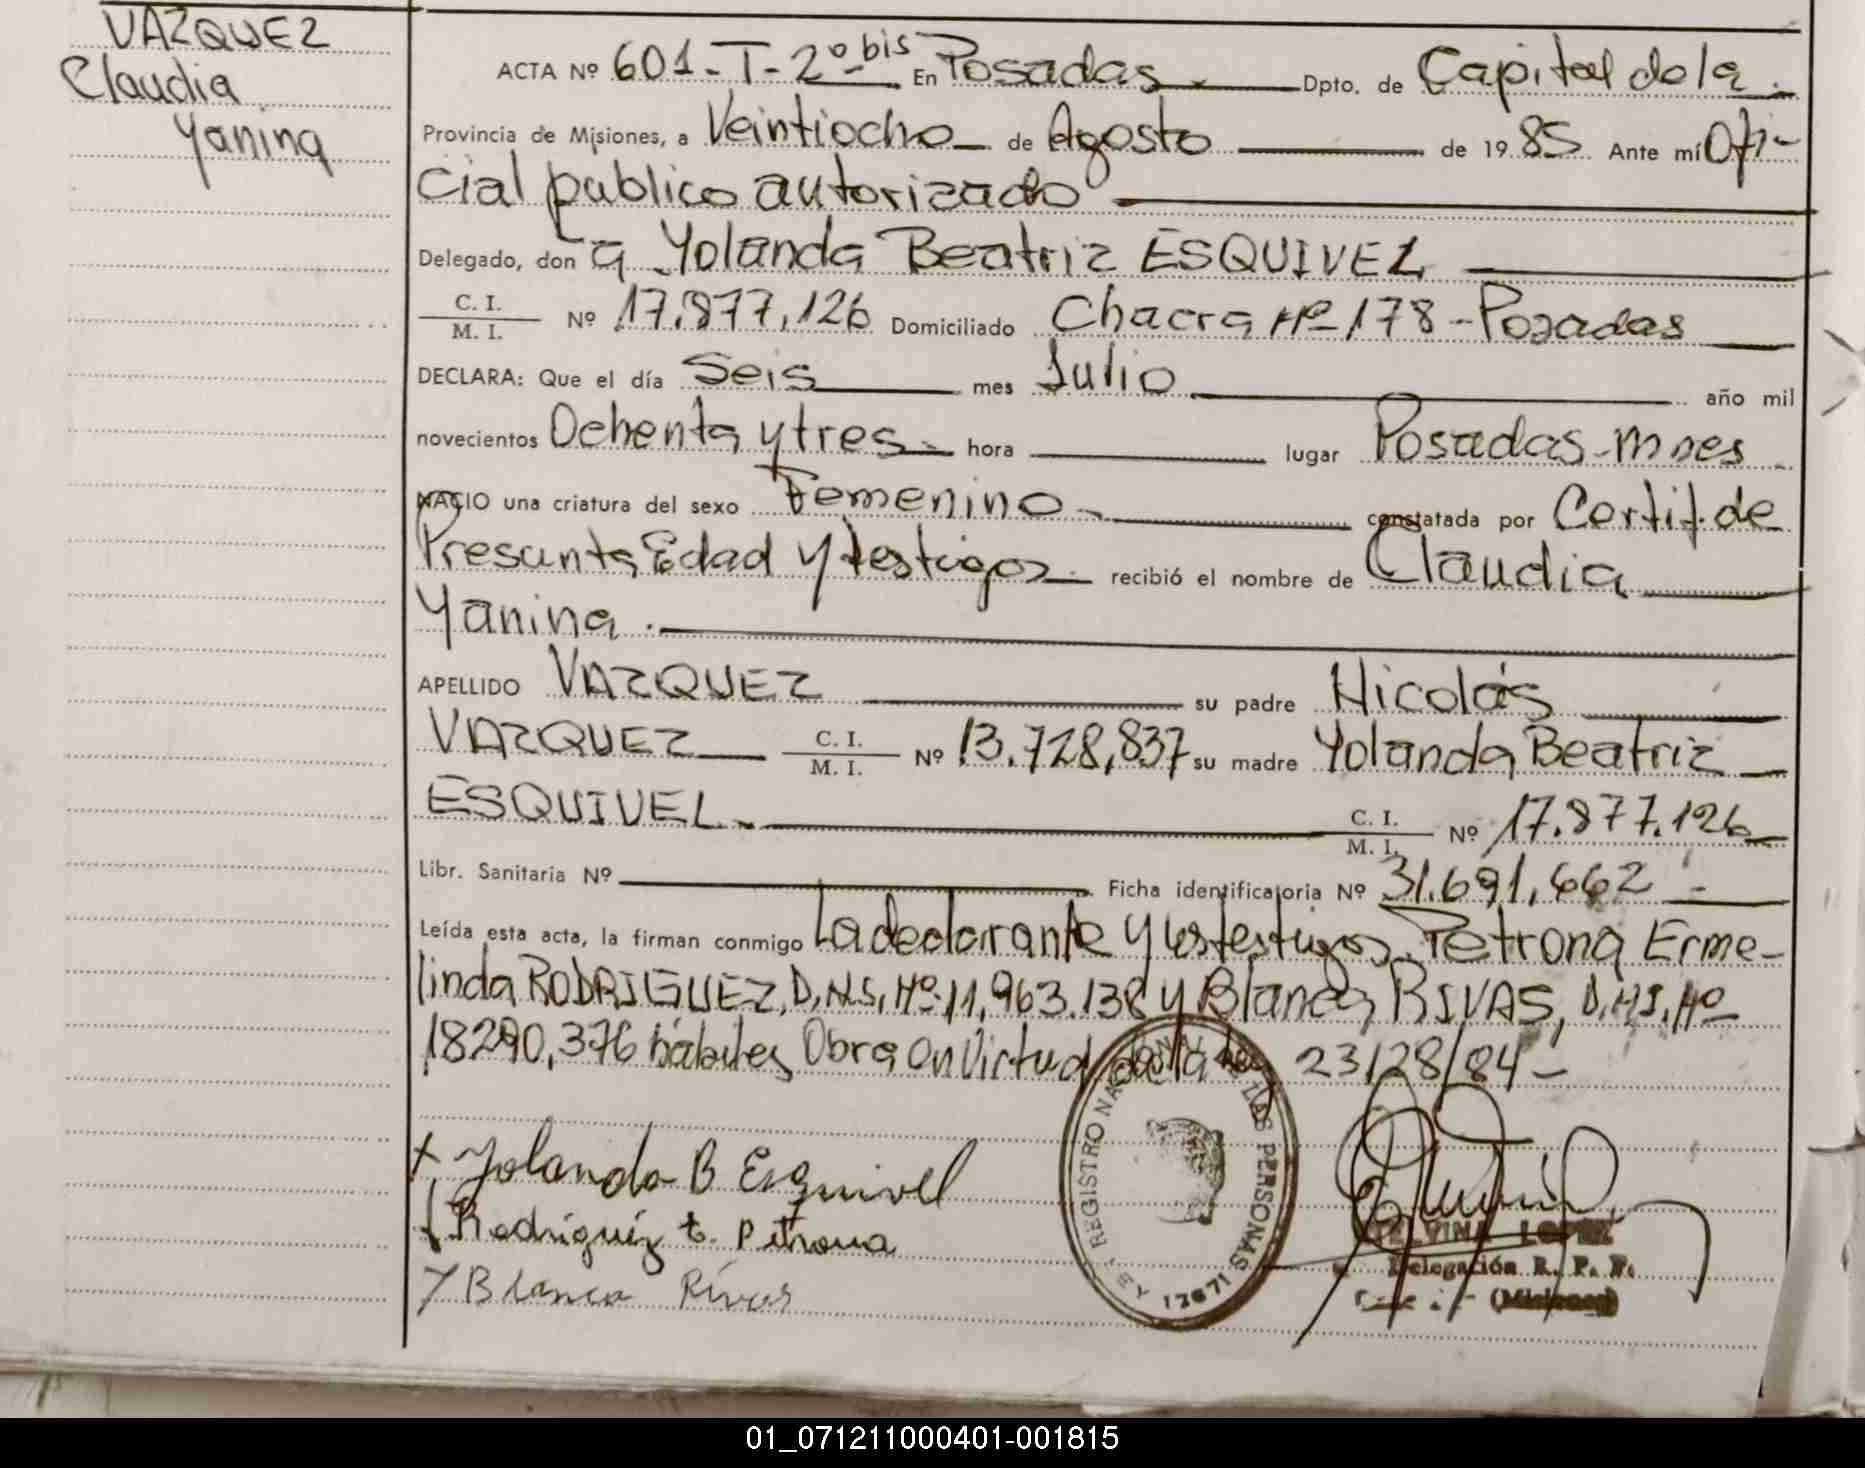 VAZQUEZ
Claudia
Yanina
ACTA Nº 601-T-2º bis En Posadas Dpto. de Capital de la
Provincia de Misiones, a Veintiocho de Agosto de 1985 Ante mí Ofi-
cial publico autorizado
Delegado, don a Yolanda Beatriz ESQUIVEL
C. I.
M. I.
Nº 17.877,126 Domiciliado Chacra Nº 178 - Posadas
DECLARA: Que el día Seis mes Julio año mil
novecientos Ochenta y tres hora lugar Posadas - Mnes
NACIO una criatura del sexo Femenino constatada por Certif. de
Presunta Edad y testigos recibió el nombre de Claudia
Yanina
APELLIDO VAZQUEZ su padre Nicolás
VAZQUEZ C. I. M. I. Nº 13.728,837 su madre Yolanda Beatriz
ESQUIVEL C. I. M. I. Nº 17.877.126
Libr. Sanitaria Nº Ficha identificatoria Nº 31.691,662
Leída esta acta, la firman conmigo la declarante y los testigos Petrona Erme-
linda RODRIGUEZ, D.N.I. Nº 11,963.138 y Blanca RIVAS, D.N.I. Nº
18290,376 hábiles, Obra en Virtud de la Ley 23128/84 -
Yolanda B Esquivel
Rodriguez E. Petrona
Blanca Rivas
REGISTRO NACIONAL DE LAS PERSONAS
LEY 13671
LOPEZ
Delegación R. P. P.
(Misiones)
01_071211000401-001815